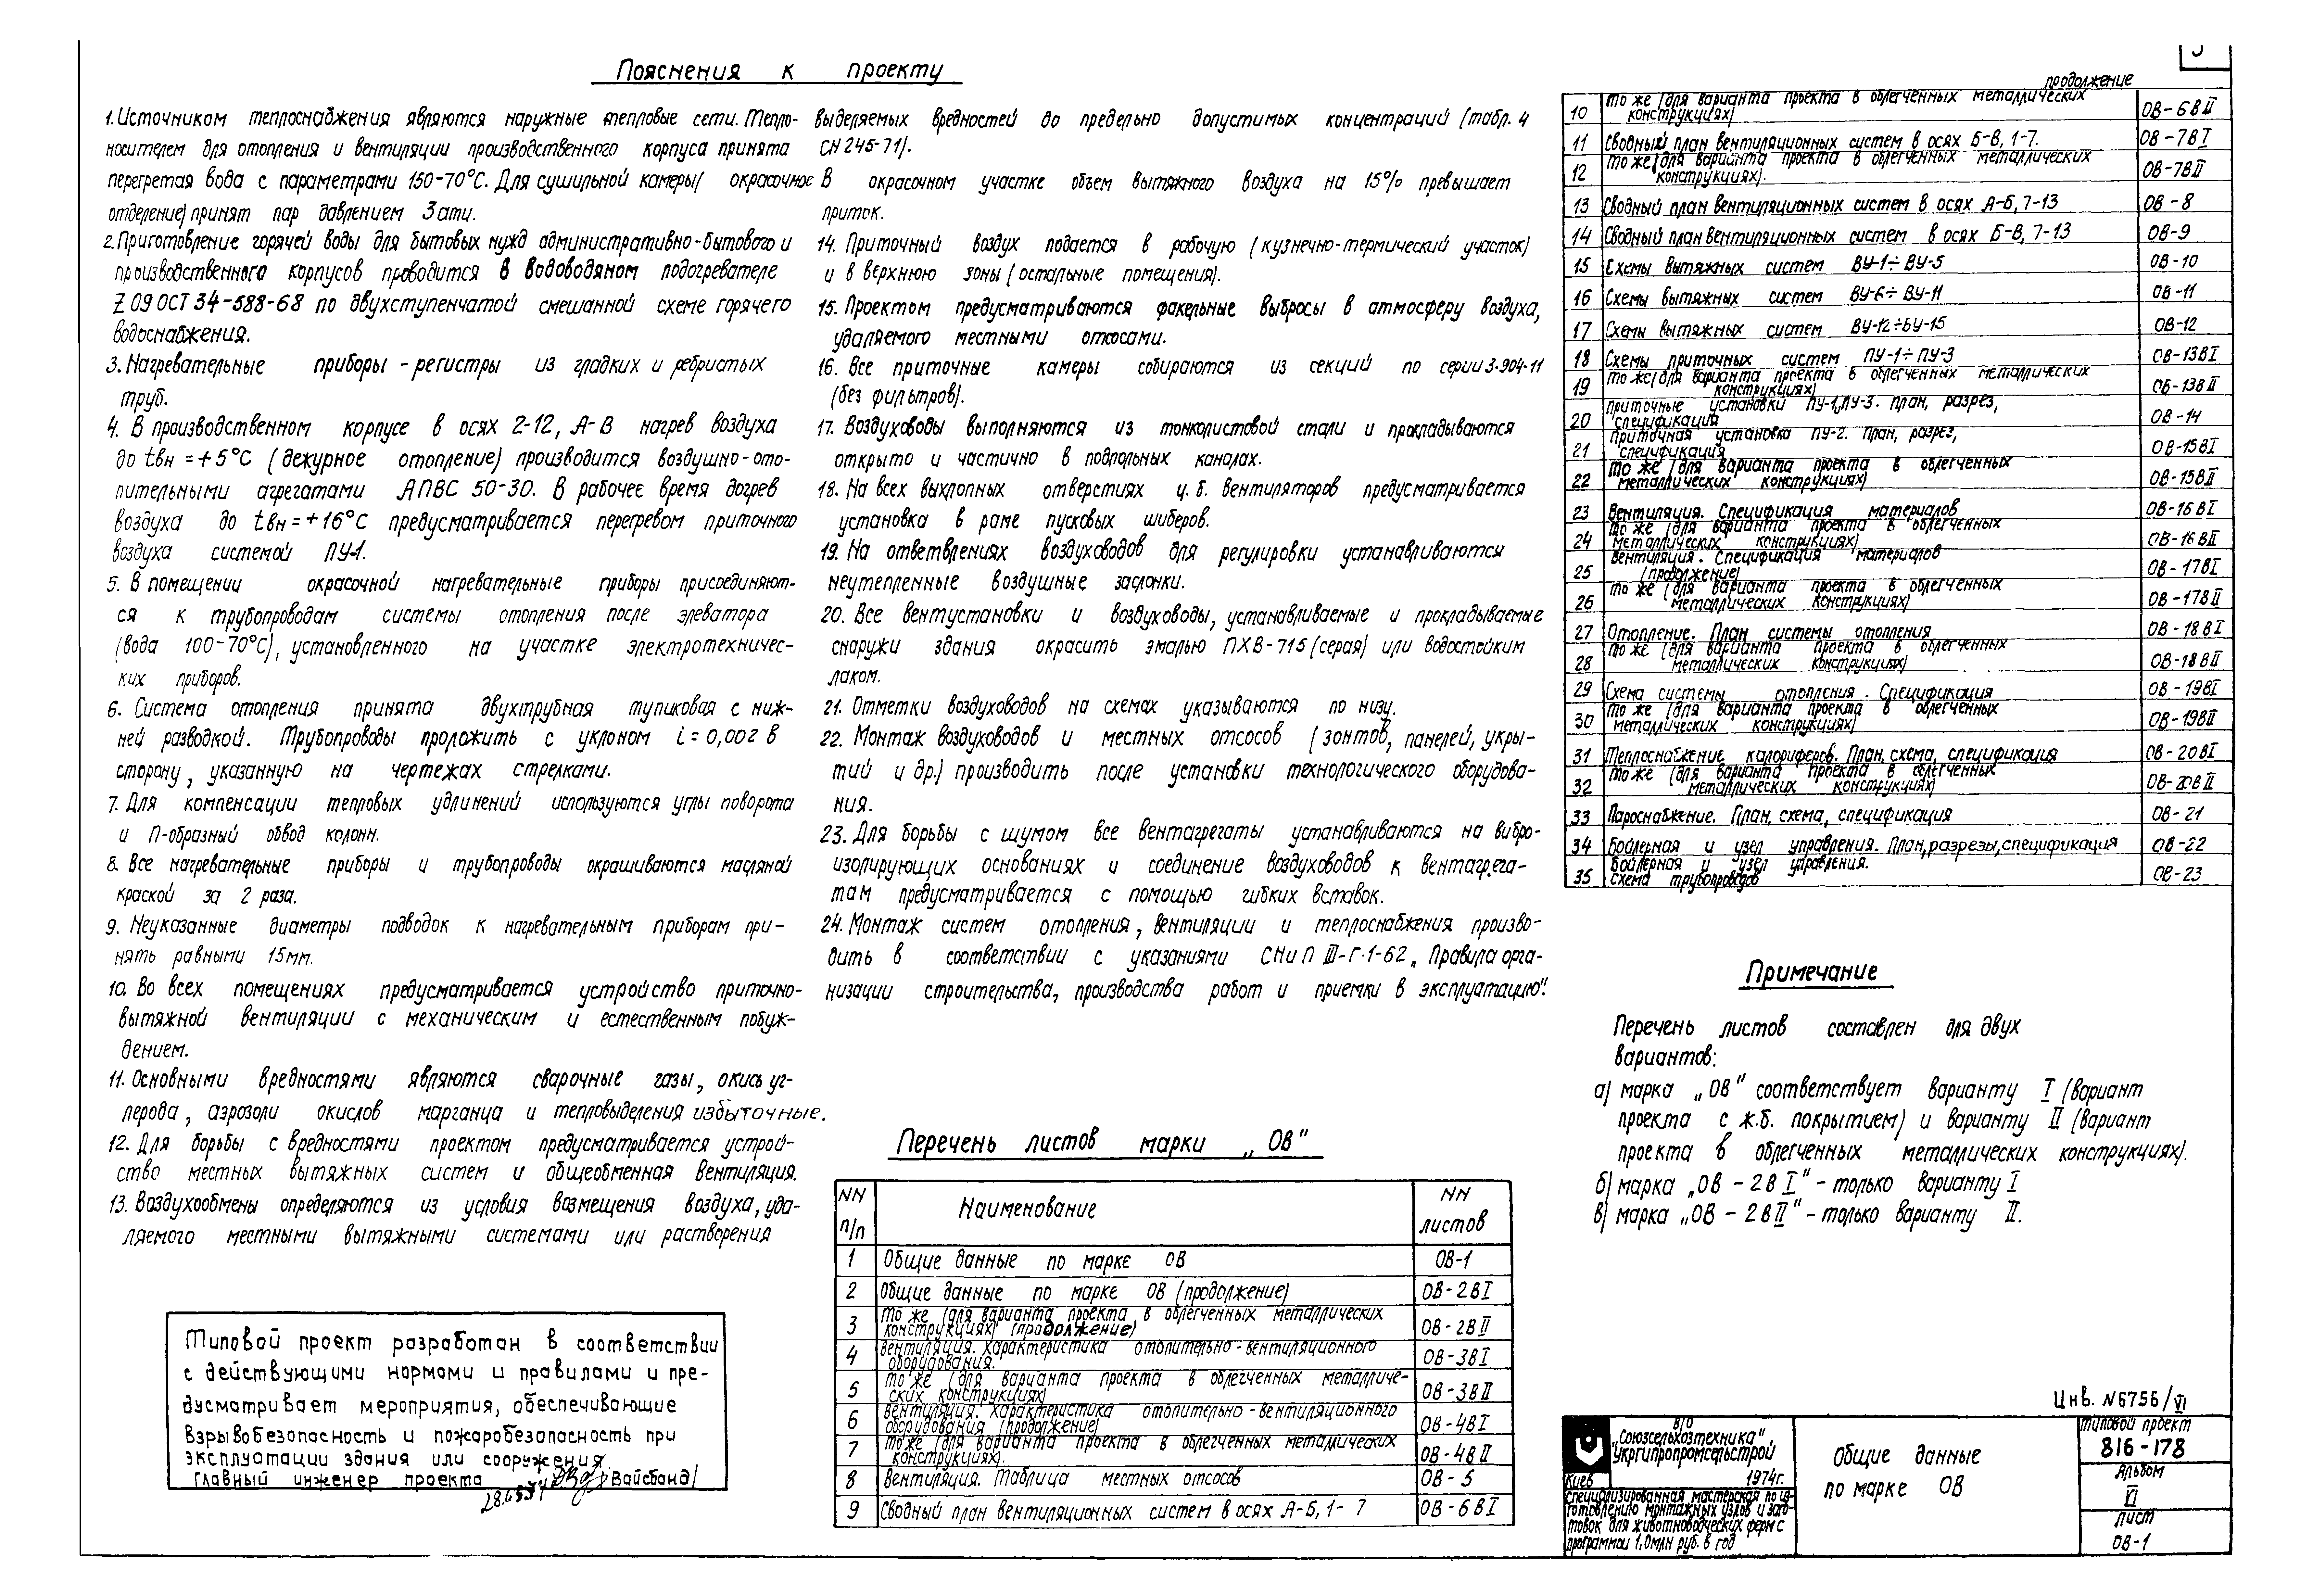 Пояснения к проекту
1. Источником теплоснабжения являются наружные тепловые сети. Тепло-
носителем для отопления и вентиляции производственного корпуса принята
перегретая вода с параметрами 150-70°С. Для сушильной камеры( окрасочное
отделение) принят пар давлением 3 ати.
2. Приготовление горячей воды для бытовых нужд административно-бытового и
производственного корпусов проводится в водоводяном подогревателе
Z 09 ОСТ 34-588-68 по двухступенчатой смешанной схеме горячего
водоснабжения.
3. Нагревательные приборы - регистры из гладких и ребристых
труб.
4. В производственном корпусе в осях 2-12, А-В нагрев воздуха
до tвн = +5°С (дежурное отопление) производится воздушно-ото-
пительными агрегатами АПВС 50-30. В рабочее время догрев
воздуха до tвн = +16°С предусматривается перегревом приточного
воздуха системой ПУ-1.
5. В помещении окрасочной нагревательные приборы присоединяют-
ся к трубопроводам системы отопления после элеватора
(вода 100-70°С), установленного на участке электротехничес-
ких приборов.
6. Система отопления принята двухтрубная тупиковая с ниж-
ней разводкой. Трубопроводы проложить с уклоном i = 0,002 в
сторону, указанную на чертежах стрелками.
7. Для компенсации тепловых удлинений используются углы поворота
и П-образный обвод колонн.
8. Все нагревательные приборы и трубопроводы окрашиваются масляной
краской за 2 раза.
9. Неуказанные диаметры подводок к нагревательным приборам при-
нять равными 15мм.
10. Во всех помещениях предусматривается устройство приточно-
вытяжной вентиляции с механическим и естественным побуж-
дением.
11. Основными вредностями являются сварочные газы, окись уг-
лерода, аэрозоли окислов марганца и тепловыделения избыточные.
12. Для борьбы с вредностями проектом предусматривается устрой-
ство местных вытяжных систем и общеобменная вентиляция.
13. Воздухообмены определяются из условия возмещения воздуха, уда-
ляемого местными вытяжными системами или растворения
выделяемых вредностей до предельно допустимых концентраций (табл. 4
СН 245-71).
В окрасочном участке объем вытяжного воздуха на 15% превышает
приток.
14. Приточный воздух подается в рабочую (кузнечно-термический участок)
и в верхнюю зоны (остальные помещения).
15. Проектом предусматриваются факельные выбросы в атмосферу воздуха,
удаляемого местными отсосами.
16. Все приточные камеры собираются из секций по серии 3.904-11
(без фильтров).
17. Воздуховоды выполняются из тонколистовой стали и прокладываются
открыто и частично в подпольных каналах.
18. На всех выхлопных отверстиях ц.б. вентиляторов предусматривается
установка в раме пусковых шиберов.
19. На ответвлениях воздуховодов для регулировки устанавливаются
неутепленные воздушные заслонки.
20. Все вентустановки и воздуховоды, устанавливаемые и прокладываемые
снаружи здания окрасить эмалью ПХВ-715 (серая) или водостойким
лаком.
21. Отметки воздуховодов на схемах указываются по низу.
22. Монтаж воздуховодов и местных отсосов (зонтов, панелей, укры-
тий и др.) производить после установки технологического оборудова-
ния.
23. Для борьбы с шумом все вентагрегаты устанавливаются на вибро-
изолирующих основаниях и соединение воздуховодов к вентагрега-
там предусматривается с помощью гибких вставок.
24. Монтаж систем отопления, вентиляции и теплоснабжения произво-
дить в соответствии с указаниями СНиП III-Г.1-62 „Правила орга-
низации строительства, производства работ и приемки в эксплуатацию".
Типовой проект разработан в соответствии
с действующими нормами и правилами и пре-
дусматривает мероприятия, обеспечивающие
взрывобезопасность и пожаробезопасность при
эксплуатации здания или сооружения.
Главный инженер проекта /Вайсбанд/
Перечень листов марки „ОВ"
NN п/п Наименование NN листов
1 Общие данные по марке ОВ ОВ-1
2 Общие данные по марке ОВ (продолжение) ОВ-2ВI
3 То же (для варианта проекта в облегченных металлических
конструкциях) (продолжение) ОВ-2ВII
4 Вентиляция. Характеристика отопительно-вентиляционного
оборудования. ОВ-3ВI
5 То же (для варианта проекта в облегченных металличе-
ских конструкциях) ОВ-3ВII
6 Вентиляция. Характеристика отопительно-вентиляционного
оборудования (продолжение) ОВ-4ВI
7 То же (для варианта проекта в облегченных металлических
конструкциях). ОВ-4ВII
8 Вентиляция. Таблица местных отсосов ОВ-5
9 Сводный план вентиляционных систем в осях А-Б, 1-7 ОВ-6ВI
продолжение
10 То же (для варианта проекта в облегченных металлических
конструкциях) ОВ-6ВII
11 Сводный план вентиляционных систем в осях Б-В, 1-7. ОВ-7ВI
12 То же (для варианта проекта в облегченных металлических
конструкциях). ОВ-7ВII
13 Сводный план вентиляционных систем в осях А-Б, 7-13 ОВ-8
14 Сводный план вентиляционных систем в осях Б-В, 7-13 ОВ-9
15 Схемы вытяжных систем ВУ-1÷ВУ-5 ОВ-10
16 Схемы вытяжных систем ВУ-6÷ВУ-11 ОВ-11
17 Схемы вытяжных систем ВУ-12÷ВУ-15 ОВ-12
18 Схемы приточных систем ПУ-1÷ПУ-3 ОВ-13ВI
19 То же (для варианта проекта в облегченных металлических
конструкциях) ОВ-13ВII
20 Приточные установки ПУ-1, ПУ-3. План, разрез,
спецификация ОВ-14
21 Приточная установка ПУ-2. План, разрез,
спецификация ОВ-15ВI
22 То же (для варианта проекта в облегченных
металлических конструкциях) ОВ-15ВII
23 Вентиляция. Спецификация материалов ОВ-16ВI
24 То же (для варианта проекта в облегченных
металлических конструкциях) ОВ-16ВII
25 Вентиляция. Спецификация материалов
(продолжение) ОВ-17ВI
26 То же (для варианта проекта в облегченных
металлических конструкциях) ОВ-17ВII
27 Отопление. План системы отопления ОВ-18ВI
28 То же (для варианта проекта в облегченных
металлических конструкциях) ОВ-18ВII
29 Схема системы отопления. Спецификация ОВ-19ВI
30 То же (для варианта проекта в облегченных
металлических конструкциях) ОВ-19ВII
31 Теплоснабжение калориферов. План, схема, спецификация ОВ-20ВI
32 То же (для варианта проекта в облегченных
металлических конструкциях) ОВ-20ВII
33 Пароснабжение. План, схема, спецификация ОВ-21
34 Бойлерная и узел управления. План, разрезы, спецификация ОВ-22
35 Бойлерная и узел управления.
Схема трубопроводов ОВ-23
Примечание
Перечень листов составлен для двух
вариантов:
а) марка „ОВ" соответствует варианту I (вариант
проекта с ж.б. покрытием) и варианту II (вариант
проекта в облегченных металлических конструкциях).
б) марка „ОВ-2ВI" - только варианту I
в) марка „ОВ-2ВII" - только варианту II.
Инв. N6756/VI
В/О
„Союзсельхозтехника"
"Укргипропромсельстрой
Киев 1974г.
Специализированная мастерская по из-
готовлению монтажных узлов и заго-
товок для животноводческих ферм с
программой 1,0 млн руб. в год
Общие данные
по марке ОВ
Типовой проект
816-178
Альбом
VI
Лист
ОВ-1